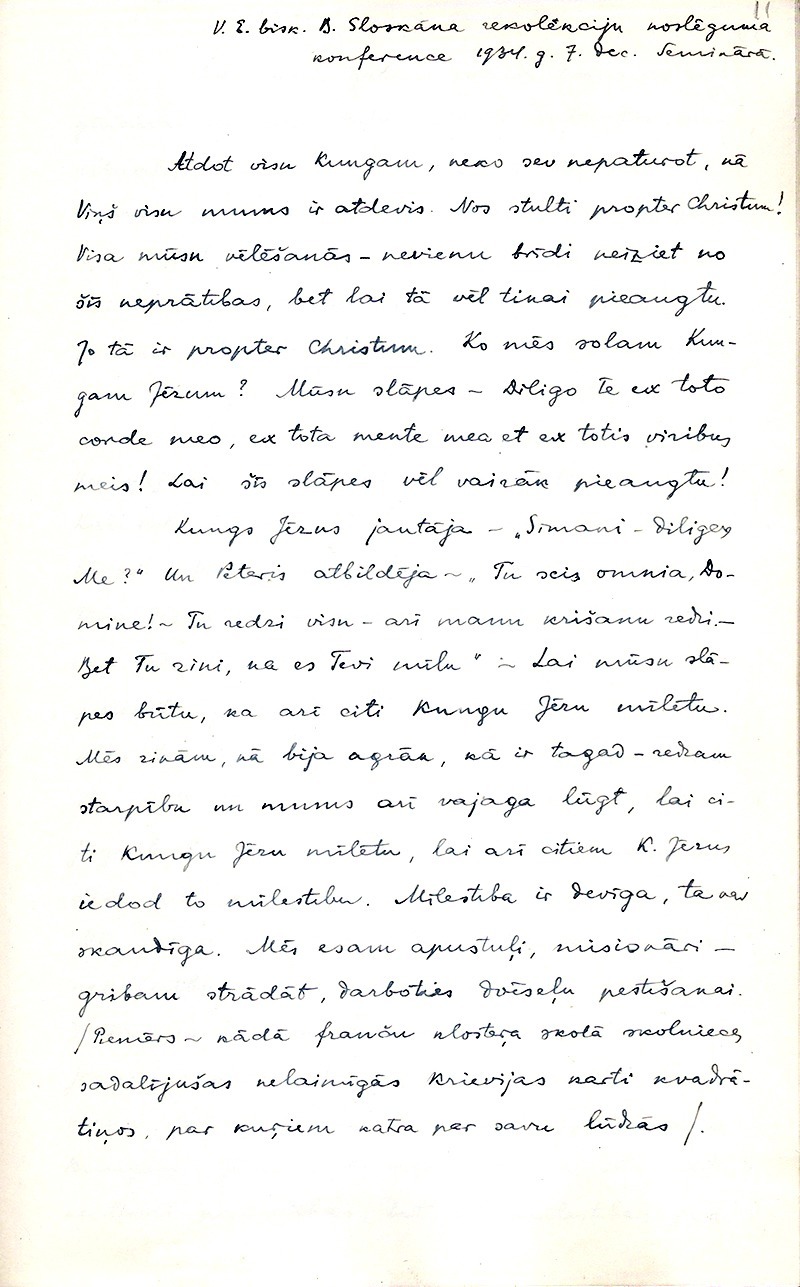 11
V. E. bisk. B. Sloskāna rekolēkciju noslēguma
konference 1934. g. 7. dec. Seminārā.
Atdot visu Kungam, neko sev nepaturot, kā
Viņš visu mums ir atdevis. Nos stulti propter Christum!
Visa mūsu vēlēšanās – nevienu brīdi neiziet no
šīs neprātības, bet lai tā vēl tikai pieaugtu.
Jo tā ir propter Christum. Ko mēs solam Kun-
gam Jēzum? Mūsu slāpes – Diligo Te ex toto
corde meo, ex tota mente mea et ex totis viribus
meis! Lai šīs slāpes vēl vairāk pieaugtu!
Kungs Jēzus jautāja – „Sīmani – diliges
Me?" Un Pēteris atbildēja – „Tu scis omnia, Do-
mine! – Tu redzi visu – arī manu krišanu redzi. –
Bet Tu zini, ka es Tevi mīlu" – Lai mūsu slā-
pes būtu, ka arī citi Kungu Jēzu mīlētu.
Mēs zinām, kā bija agrāk, kā ir tagad – redzam
starpību un mums arī vajaga lūgt, lai ci-
ti Kungu Jēzu mīlētu, lai arī citiem K. Jēzus
iedod to mīlestību. Mīlestība ir devīga, tā nav
skaudīga. Mēs esam apustuļi, misionāri –
gribam strādāt, darboties dvēseļu pestīšanai.
/Piemērs – kādā franču klostera skolā skolnieces
sadalījušas nelaimīgās Krievijas karti kvadrā-
tiņos, par kuŗiem katra par savu lūdzās/.